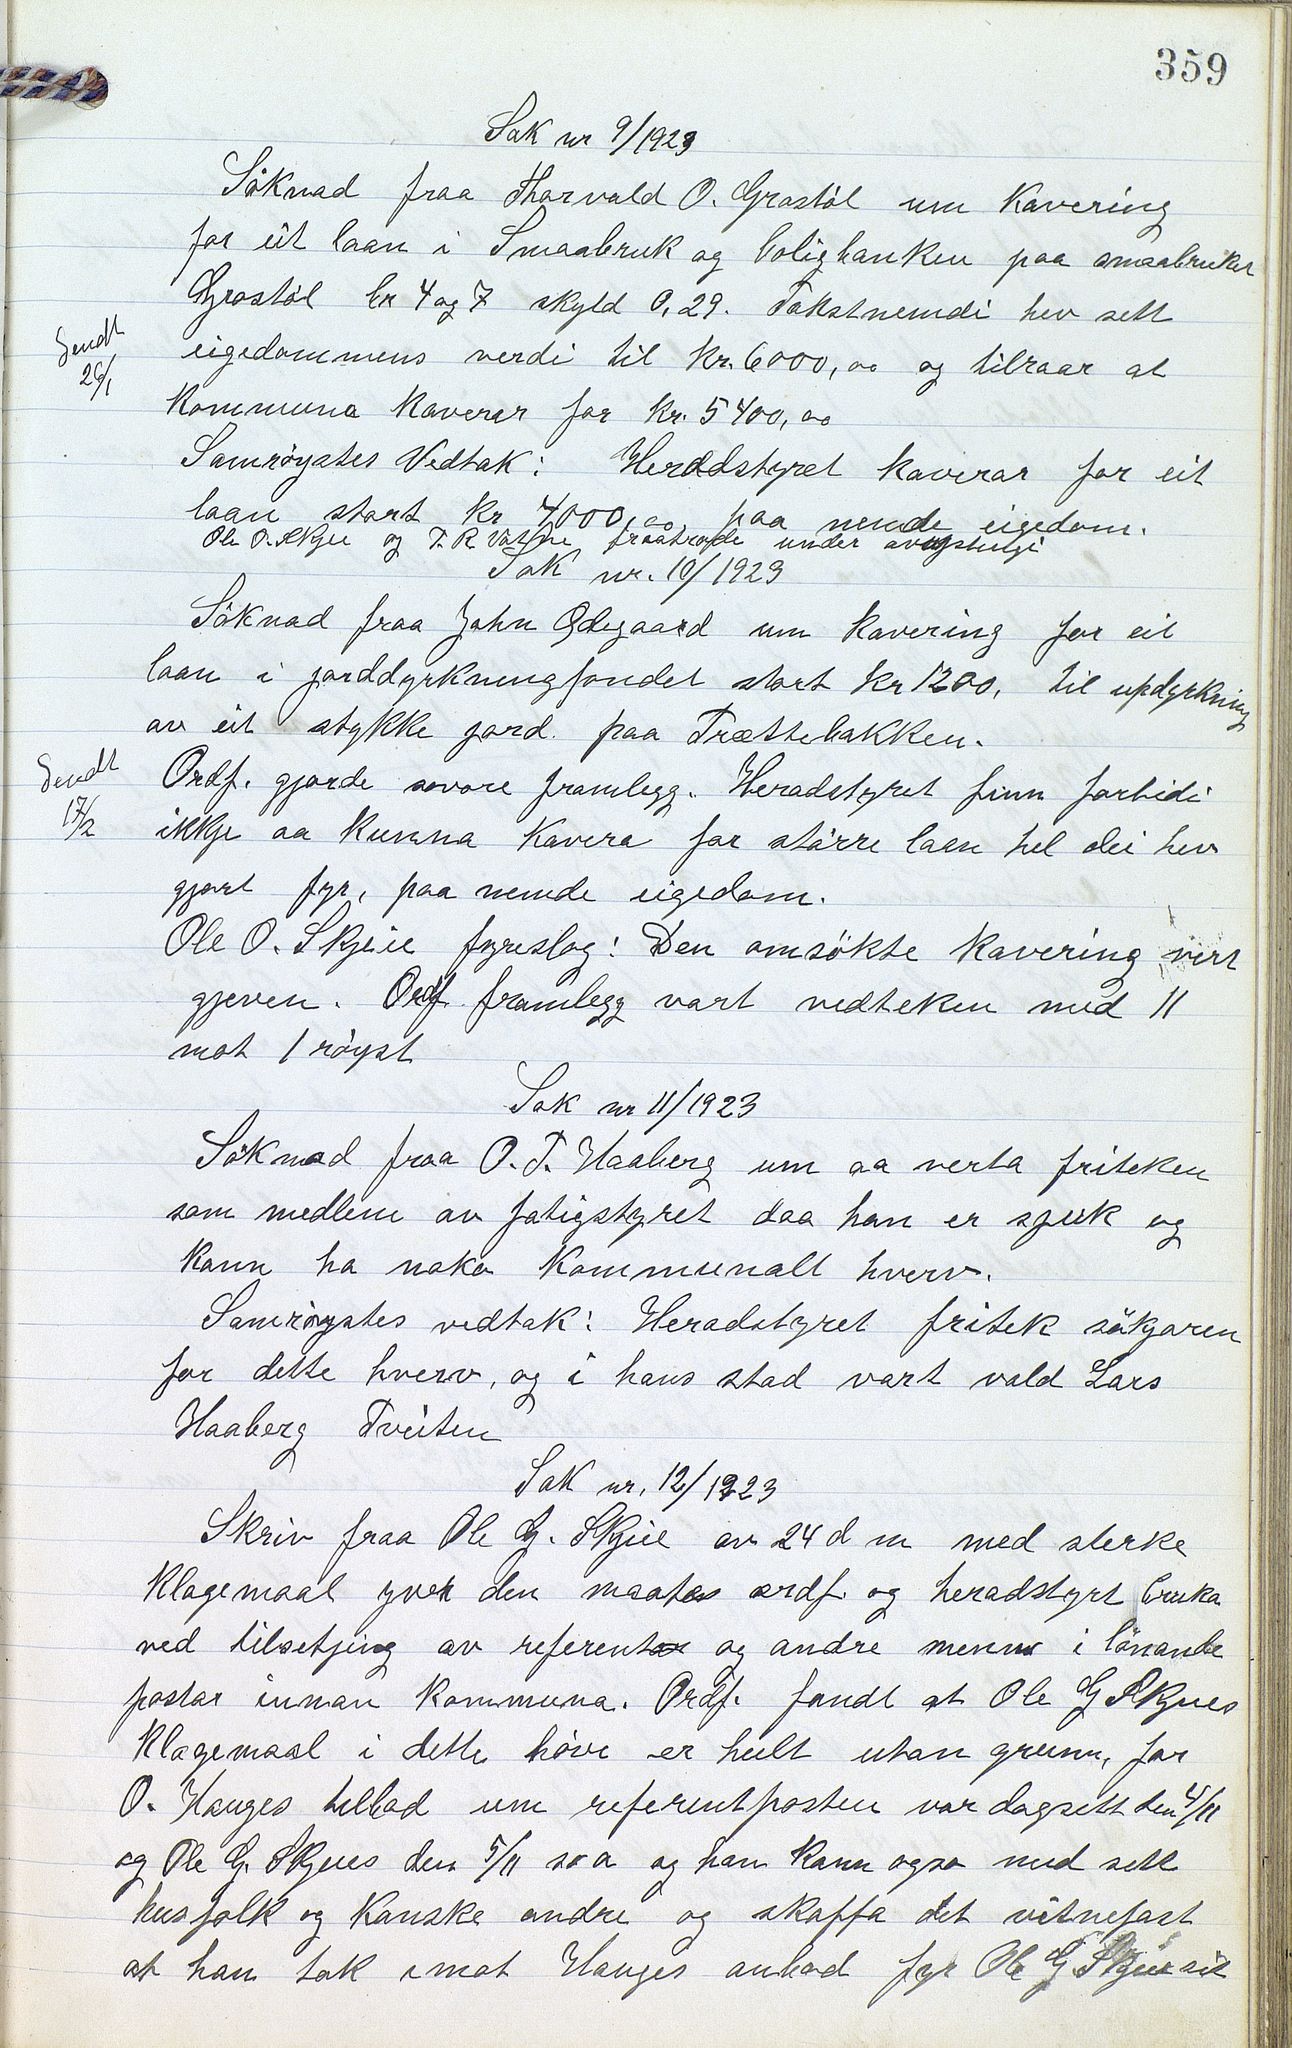 359
Sak nr 9/1923
Söknad fraa Thorvald O. Grostöl um kavering
for eit laan i Smaabruk og bolighanken paa smaabruket
Grostöl br 4 og 7 skyld 0,29. Takstnemdi hev sett
Sendt
26/1
eigedommens verdi til kr. 6000,00 og tilraar at
kommuna kaverar for kr. 5400,00
Samröystes Vedtak: Herddstyret kaverar for eit
laan stort kr 4000,00, paa nemde eigedom.
Ole O. Skjee og T. R. Vatne fraatraade under
Sak nr. 10/1923
Söknad fraa John Ödegaard um kavering for eit
laan i jorddyrkningfondet stort kr 1200, til updyrkning
av eit stykke jord paa Trættebakken.
Sendt
17/2
Ordf. gjorde sovore framlegg. Heradstyret finn forbidi
ikkje aa kunna kavera for större laan hel dei hev
gjort fyr, paa nemde eigedom.
Ole O. Skjeie fyreslog: Den omsökte kavering vert
gjeven. Ordf framlegg vart vedteken med 11
mot 1 röyst
Sak nr 11/1923
Söknad fraa O. T. Haaberg um aa verta friteken
som medlem av fatigstyret daa han er sjuk og
kann ha noko kommunalt hverv.
Samröystes vedtak: Heradstyret fritek sökjaren
for dette hverv, og i hans stad vart vald Lars
Haaberg Tveiten
Sak nr, 12/1923
Skriv fraa Ole G. Skjeie av 24 d m med sterke
klagemaal yver den maaten ordf. og heradstyrt bruka
ved tilsetjing av referent og andre menn i lönande
postar innan kommuna. Ordf. fandt at Ole G Skjeies
klagemaal i dette höve er heilt utan grunn, for
O. Hauges tilbod um referentposten var dagsett den 4/11
og Ole G. Skjeies den 5/11 s a og han kann ogso med sitt
husfolk og kanske andre og skaffa det vitnefast
at han tok imot Hauges anbod fyr Ole G Skjeie sit